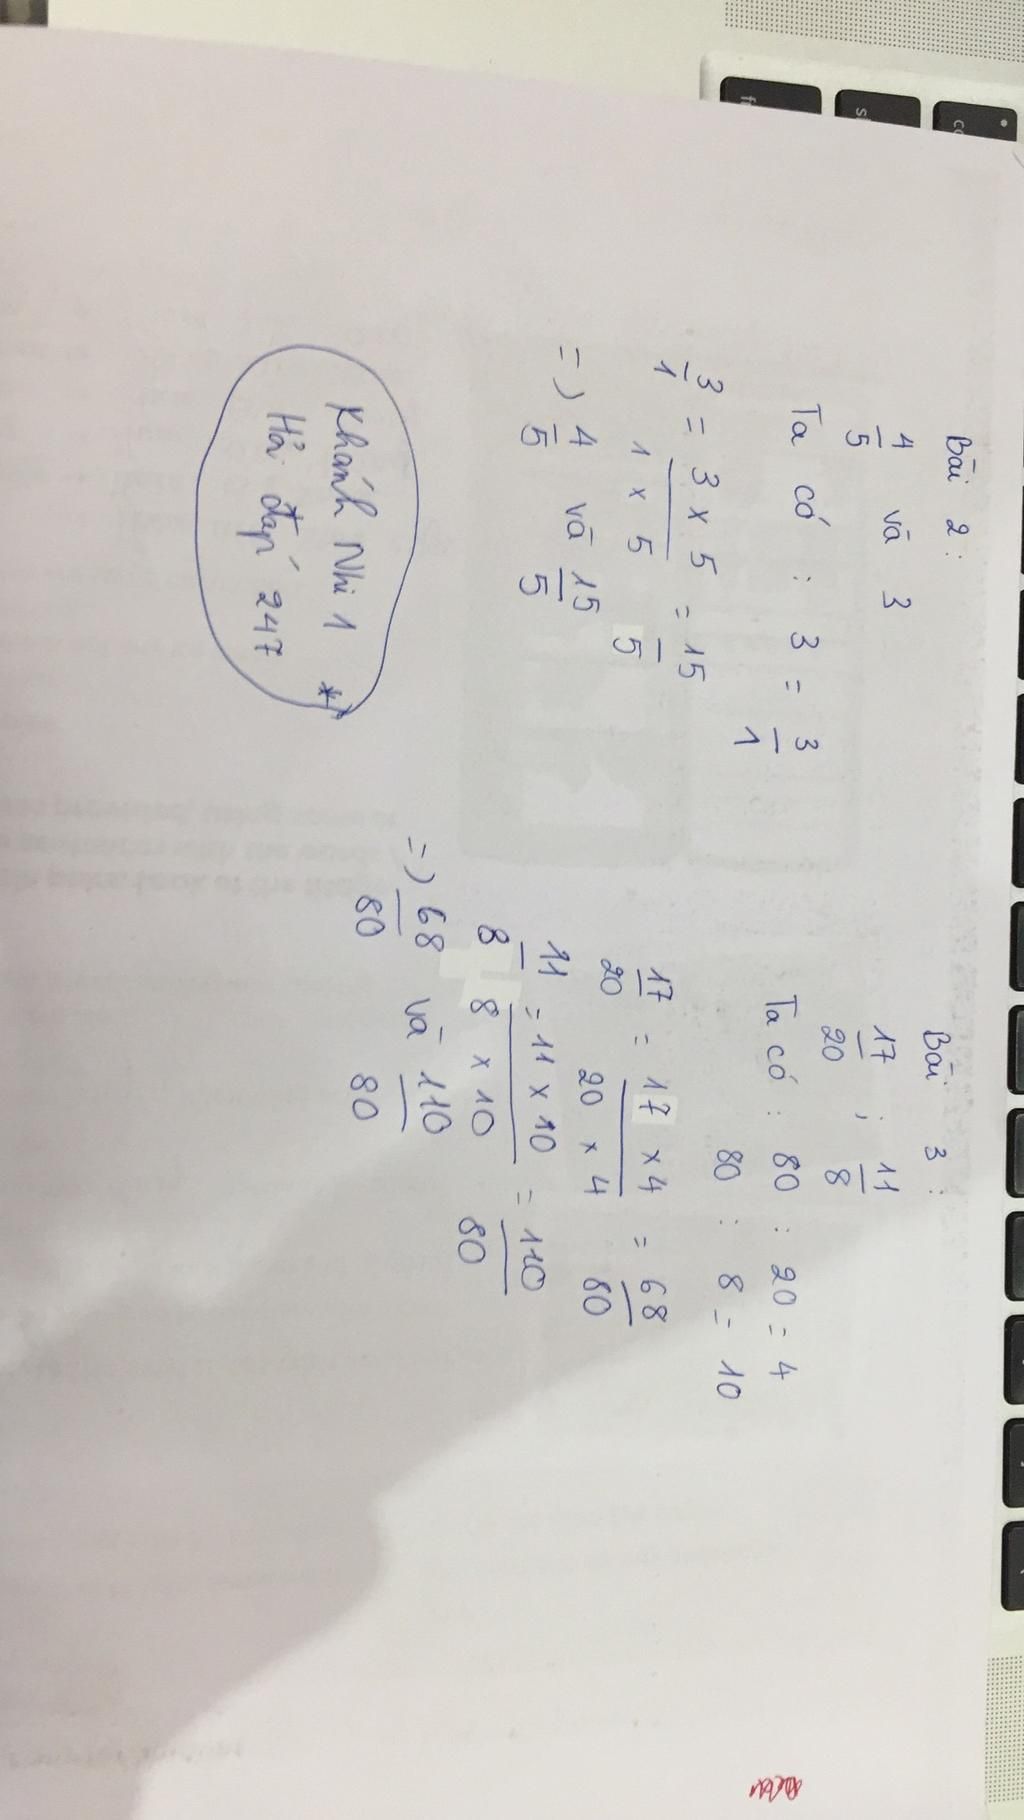 Bài 2:
4/5 và 3
Ta có : 3 = 3/1
3/1 = 3 x 5 / 1 x 5 = 15/5
=) 4/5 và 15/5
Khánh Nhi 1 **
Hỏi đáp 247
Bài 3:
17/20 ; 11/8
Ta có : 80 : 20 = 4
80 : 8 = 10
17/20 = 17 x 4 / 20 x 4 = 68/80
11/8 = 11 x 10 / 8 x 10 = 110/80
=) 68/80 và 110/80